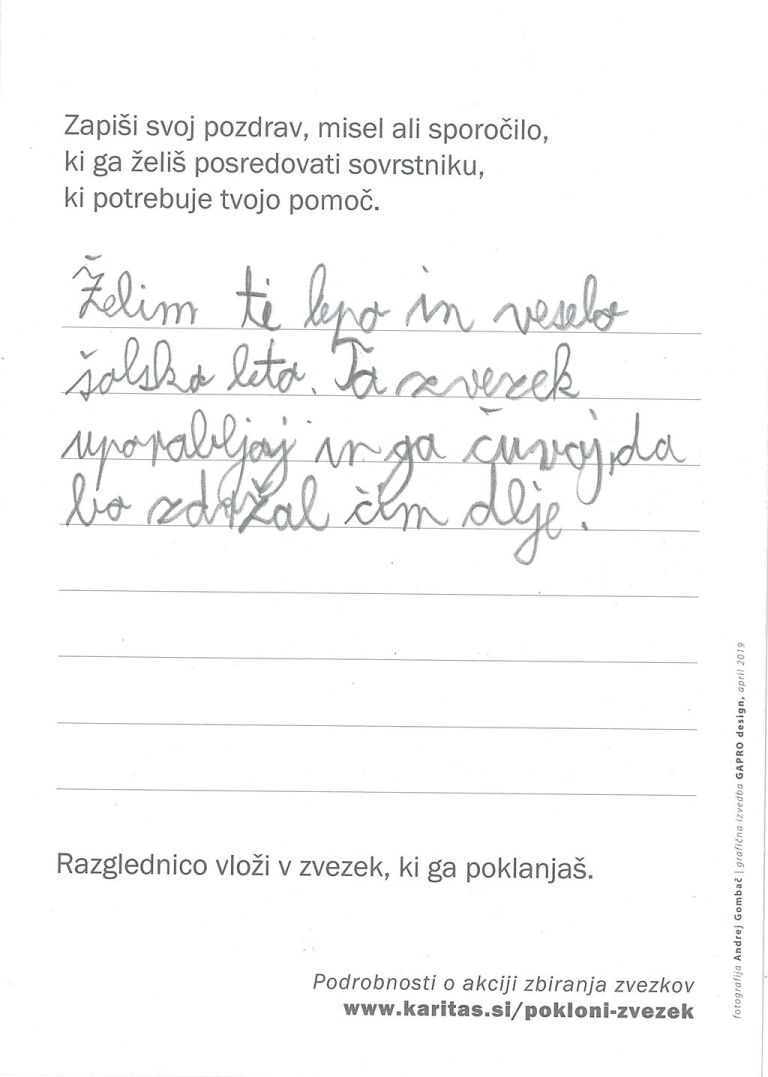 Zapiši svoj pozdrav, misel ali sporočilo,
ki ga želiš posredovati sovrstniku,
ki potrebuje tvojo pomoč.
Želim ti lepo in veselo
šolsko leto. Ta zvezek
uporabljaj in ga čuvaj, da
bo zdržal čim dlje.
Razglednico vloži v zvezek, ki ga poklanjaš.
Podrobnosti o akciji zbiranja zvezkov
www.karitas.si/pokloni-zvezek
fotografija Andrej Gombač | grafična izvedba GAPRO design, april 2019